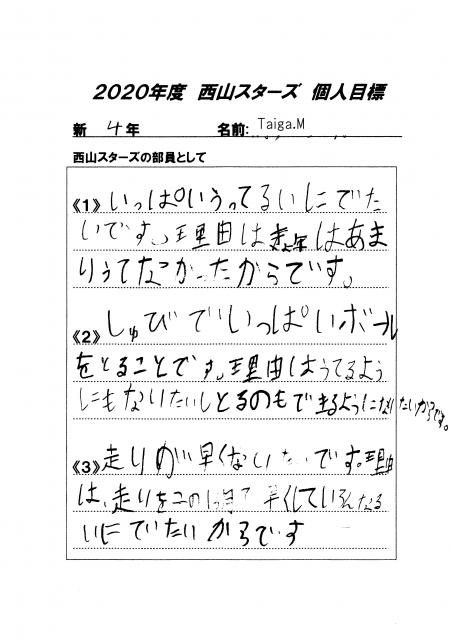 2020年度 西山スターズ 個人目標
新 4年 名前: Taiga.M
西山スターズの部員として
《1》いっぱいうってるいにでた
いです。理由は去年はあま
りうてなかったからです。
《2》しゅびでいっぱいボール
をとることです。理由はうてるよう
にもなりたいしとるのもできるようになりたいからです。
《3》走りが早くないたいです。理由
は、走りをこの 早くしているんなる
いにでていたいからです